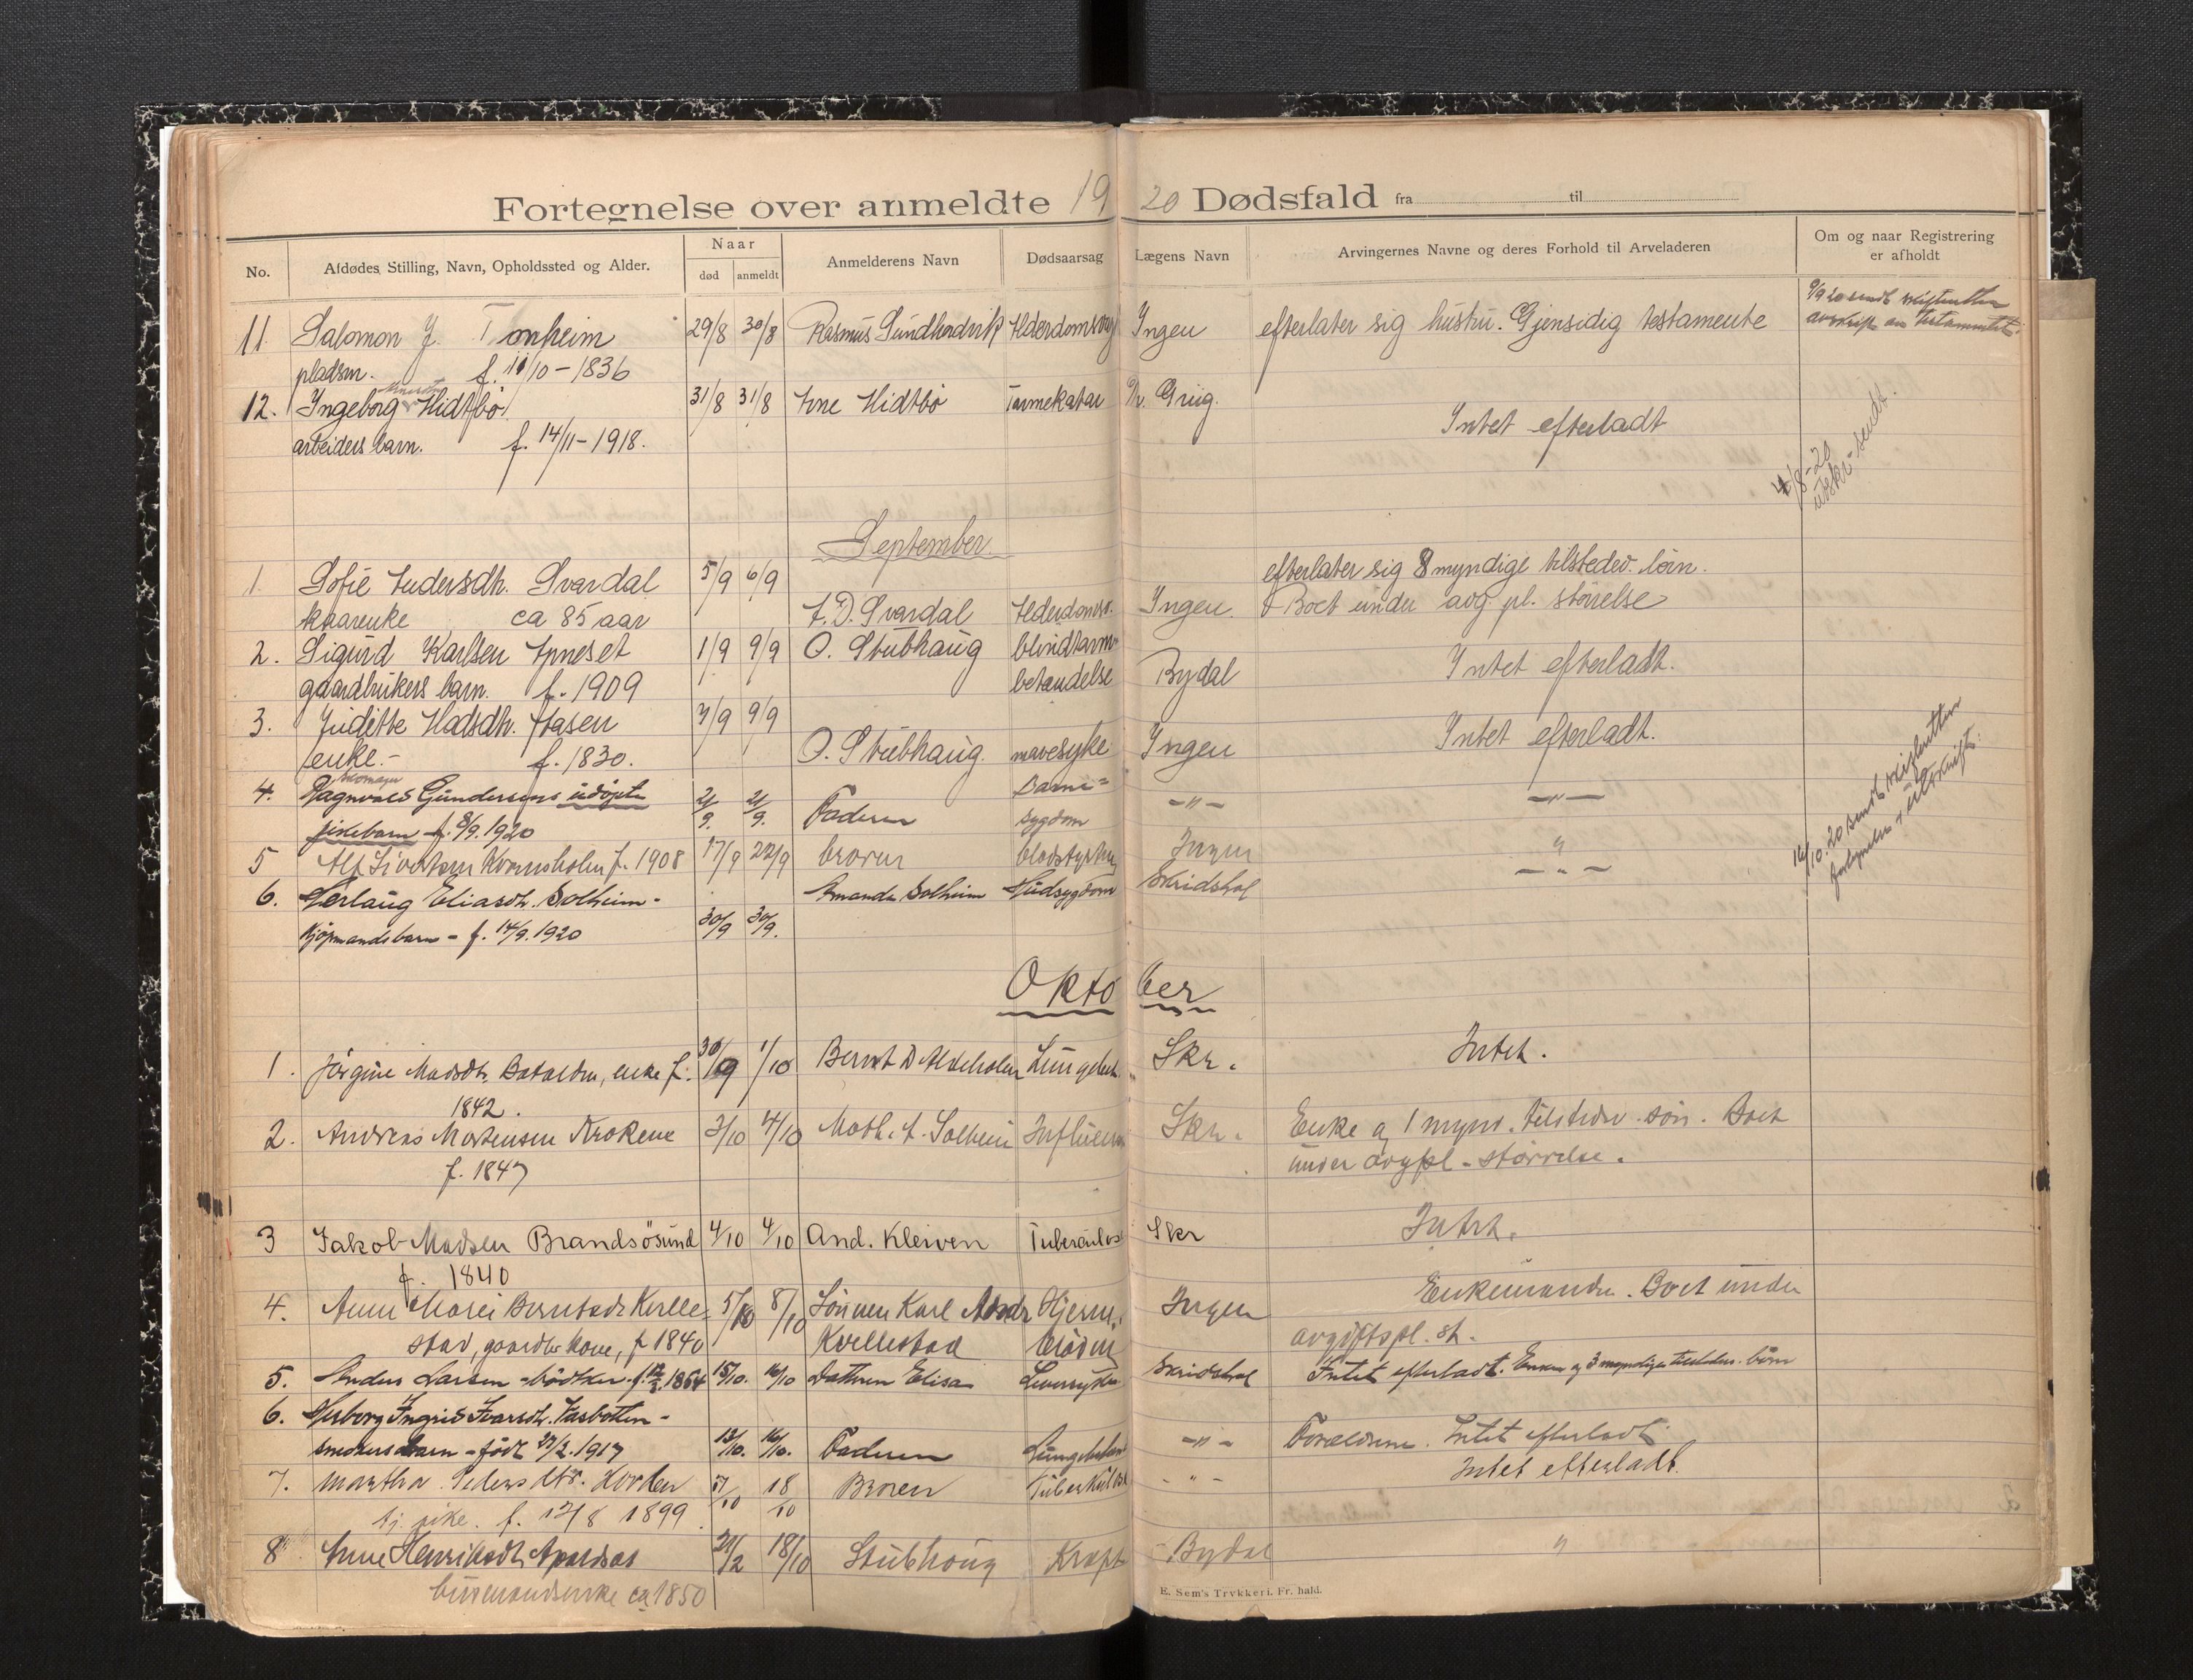 Fortegnelse over anmeldte 1920 Dødsfald fra til
No.
Afdødes Stilling, Navn, Opholdssted og Alder.
Naar
død
anmeldt
Anmelderens Navn
Dødsaarsag
Lægens Navn
Arvingernes Navne og deres Forhold til Arveladeren
Om og naar Registrering
er afholdt
11. Salomon J. Tonheim 29/8 30/8 Rasmus Sundhordvik Alderdomssvag Ingen efterlater sig hustru. Gjensidig testamente
9/9 20 sendt skifteretten
avskrift av testamentet.
pladsm. f. 11/10 - 1836
12. Ingeborg Hidtbö 31/8 31/8 Arne Hidtbö Tarmekatar Dr. Grieg. Intet efterladt
arbeiders barn. f. 14/11 - 1918.
4/8-20
utskr. sendt.
September
1. Sofie Andersdh. Svardal 5/9 6/9 efterlater sig 8 myndige tilstedev. börn.
kaarenke ca 85 aar A. D. Svardal Alderdomsv. Ingen. Boet under avg.pl. störrelse
2. Sigurd Karlsen Apneset 1/9 9/9 O. Stubhaug blindtarm- Intet efterladt.
gaardbrukers barn. f. 1909 betændelse Bydal
3. Juditte Madsdh. Aasen 7/9 9/9 Intet efterladt.
enke.- f. 1830. O. Stubhaug. mavesyke Ingen
4. Skomager Ragnvald Gundersens udöpte 2/9. 2/9. Faderen Barne= -"- -"-
pikebarn f. 8/9. 1920 sygdom
5 Alf Sivertsen Kvernsholm f. 1908 17/9 22/9 broren blodstyrtn. Ingen "
6. Herlaug Eliasdh. Solheim - Amanda Solheim Hudsygdom Skridshol -"-
kjöpmandsbarn - f. 14/9. 1920 30/9 30/9.
14/10. 20 sendt skifteretten
fortegnelse + utskrift.
Oktober
1. Jörgine Madsdh. Batalden, enke f. 30/9 1/10 Bernt D Alteholm Lungebet. Skr. Intet.
1842.
2. Andreas Mortensen Krokene 3/10 4/10 Math. A. Solheim Influensa Skr. Enke og 1 mynd. tilstedev. sön. Boet
f. 1847 under avgpl. störrelse.
3 Jakob Madsen Brandsösund 4/10 4/10 And. Kleiven Tuberculos Skr Intet.
f. 1840
4. Anne Marie Berntsdt Kvelle- 5/10 8/10 Sönnen Karl Hjerne- Ingen Enkemanden. Boet under
stad, gaardbr kone, f 1840 Kvellestad blödn. avgiftspl. st.
5. Anders Larsen - bödker - f. 1864 15/10. 16/10 Datteren Elisa Leversyke Skridshol Intet efterladt. Enken og 3 myndige tilstedev. börn
6. Herborg Ingrid Ivarsdt. Vasbotten -
smedens barn - född 27/2. 1917 12/10. 16/10. Faderen Lungebetæn -"- Forældrene. Intet efterladt
7. Martha Peders dtr. Hovden 5/10 18/10 Broren Tuberkulose -"- Intet efterladt.
tj. pike. f. 12/8 1899
8 Anne Henriksdt. 21/2 18/10 Stubhoug Kræft Bydal "
husmandsenke ca 1850
E. Sem's Trykkeri. Fr. hald.